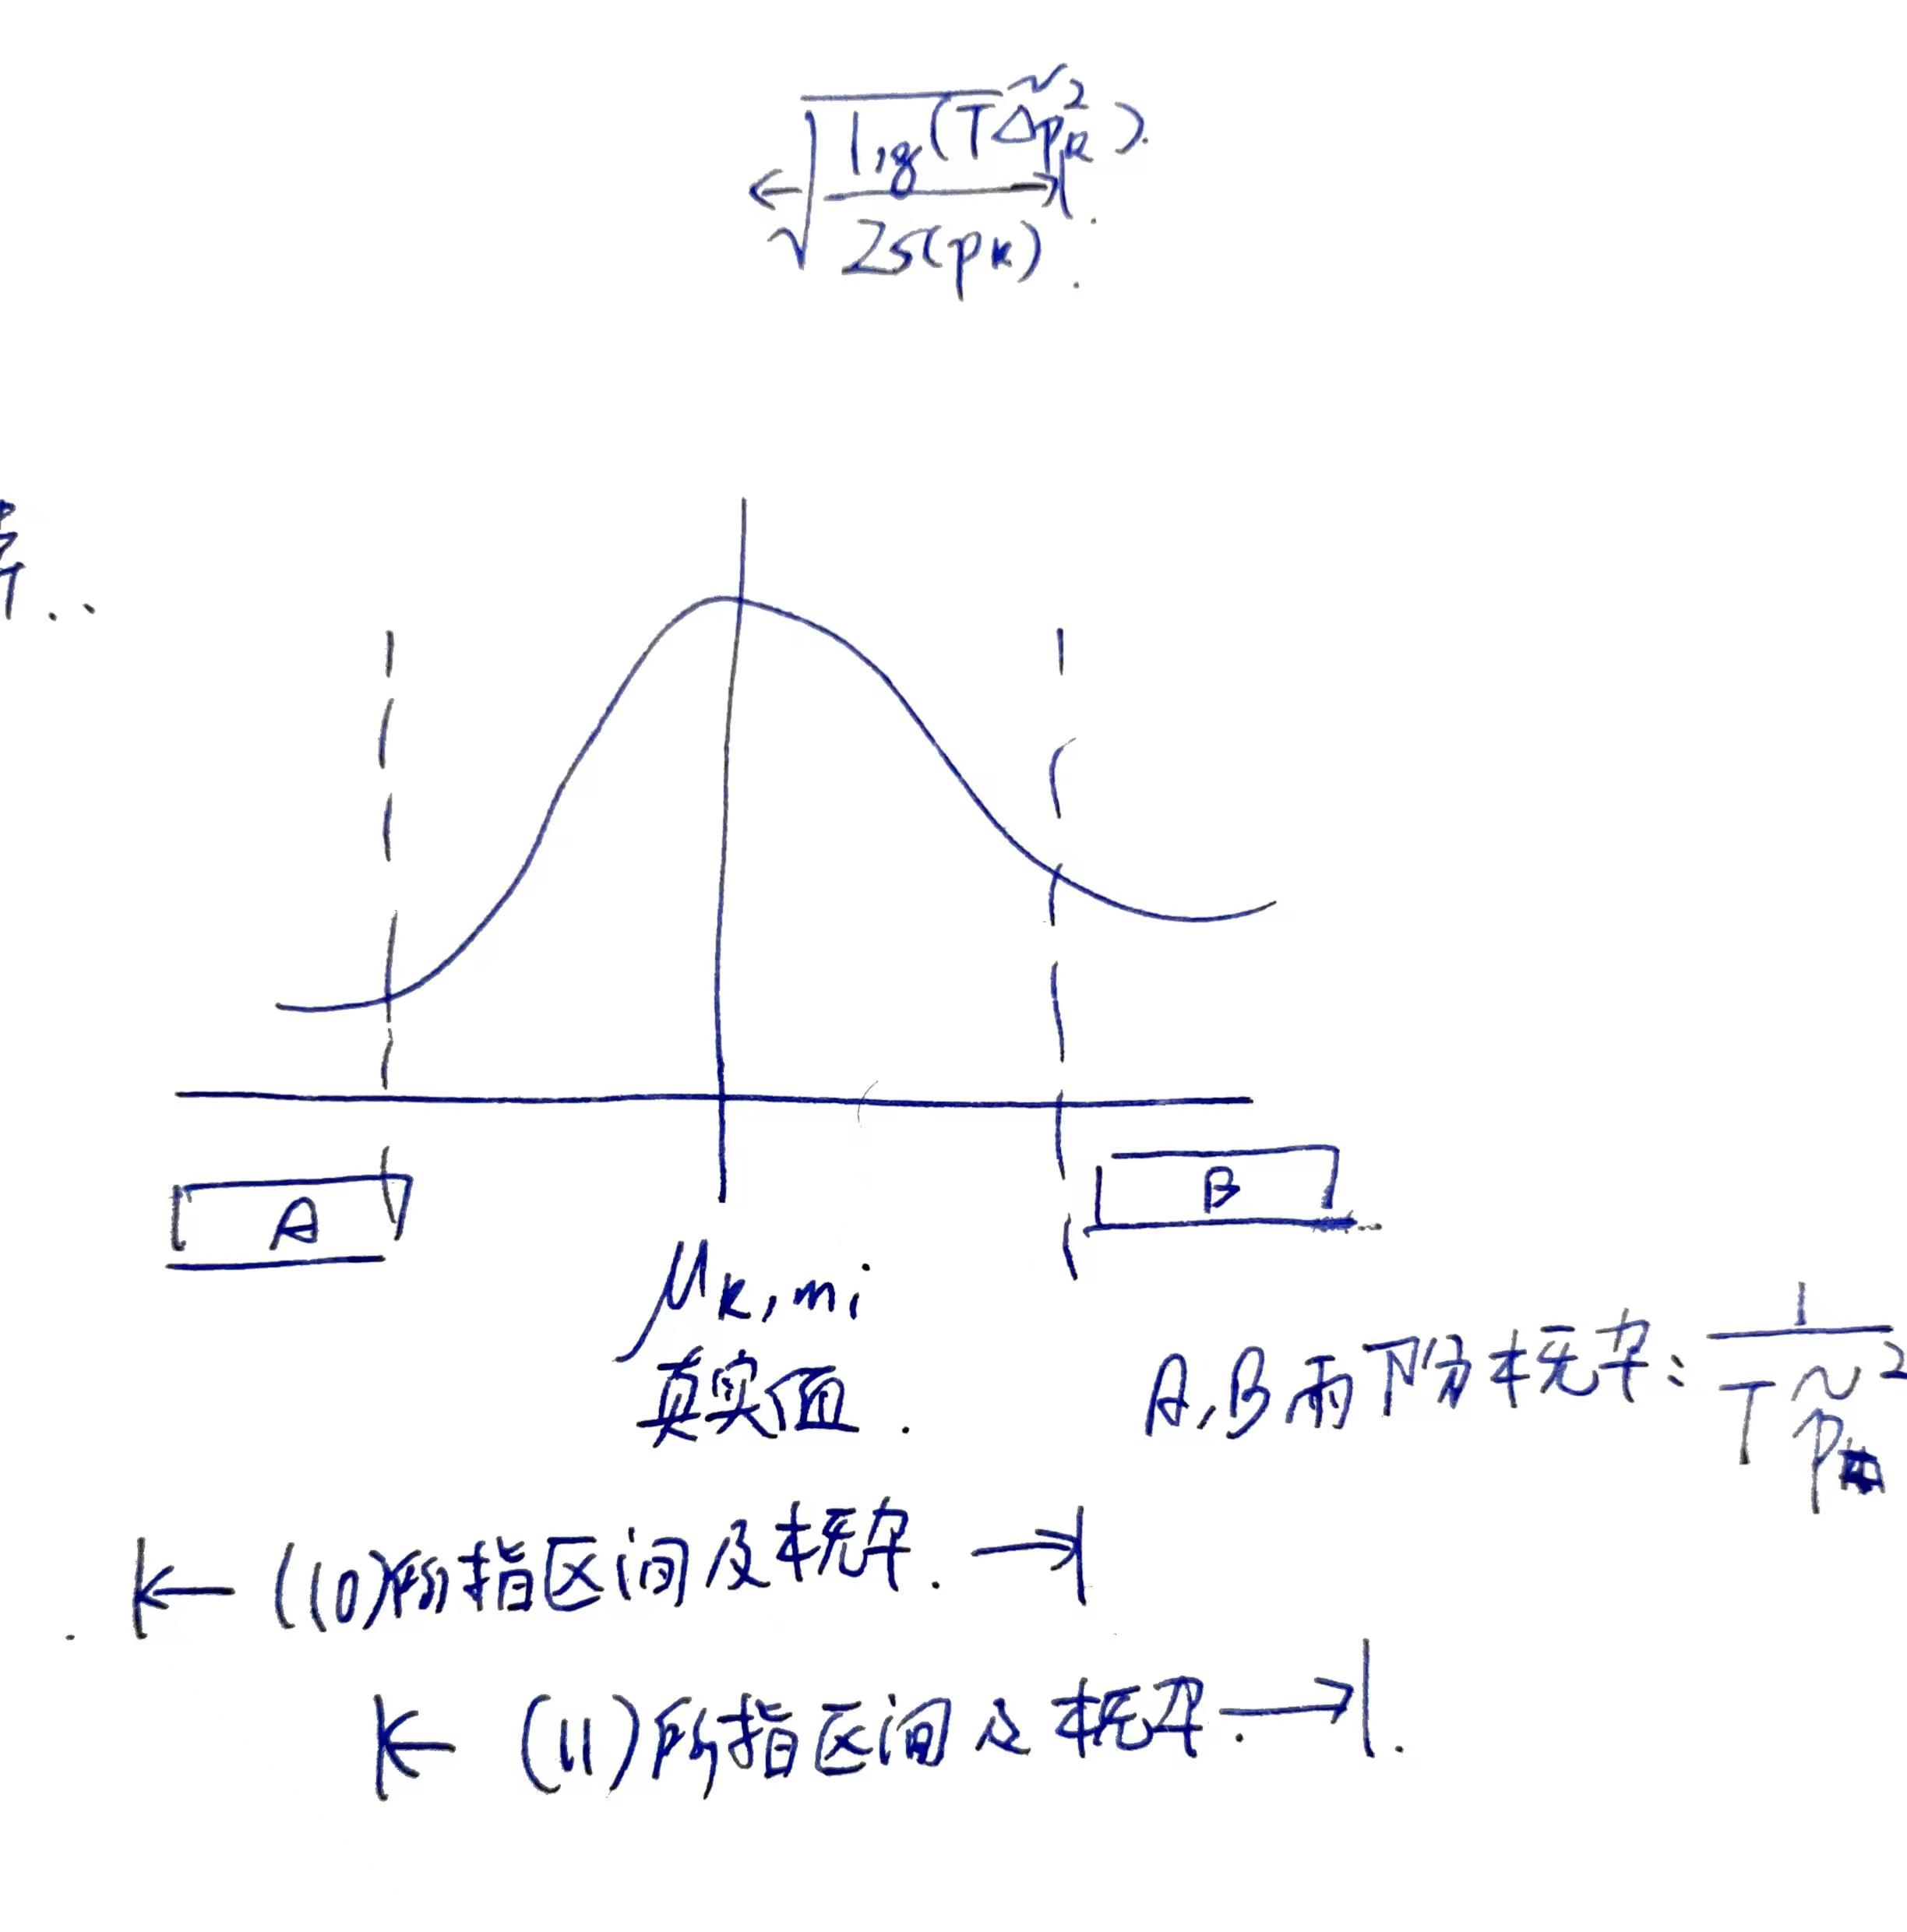 √(log(TΔ̃²pk) / 2s(pk))
A
B
μk,mi
真实值.
A,B两部分概率: 1 / TΔ̃²pk
← (10)所指区间及概率. →
← (11)所指区间及概率. →